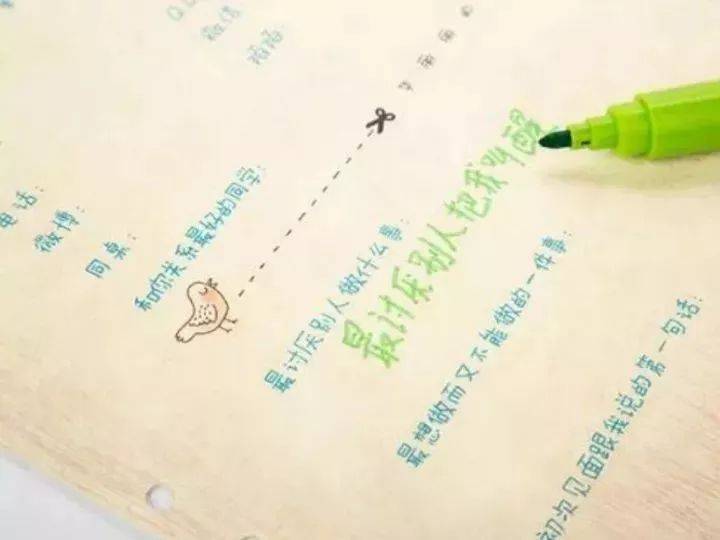 微信
电话：
微博：
同桌：
和你关系最好的同学：
最讨厌别人做什么事：
最讨厌别人把我叫醒
最想做而又不能做的一件事：
初次见面跟我说的第一句话：